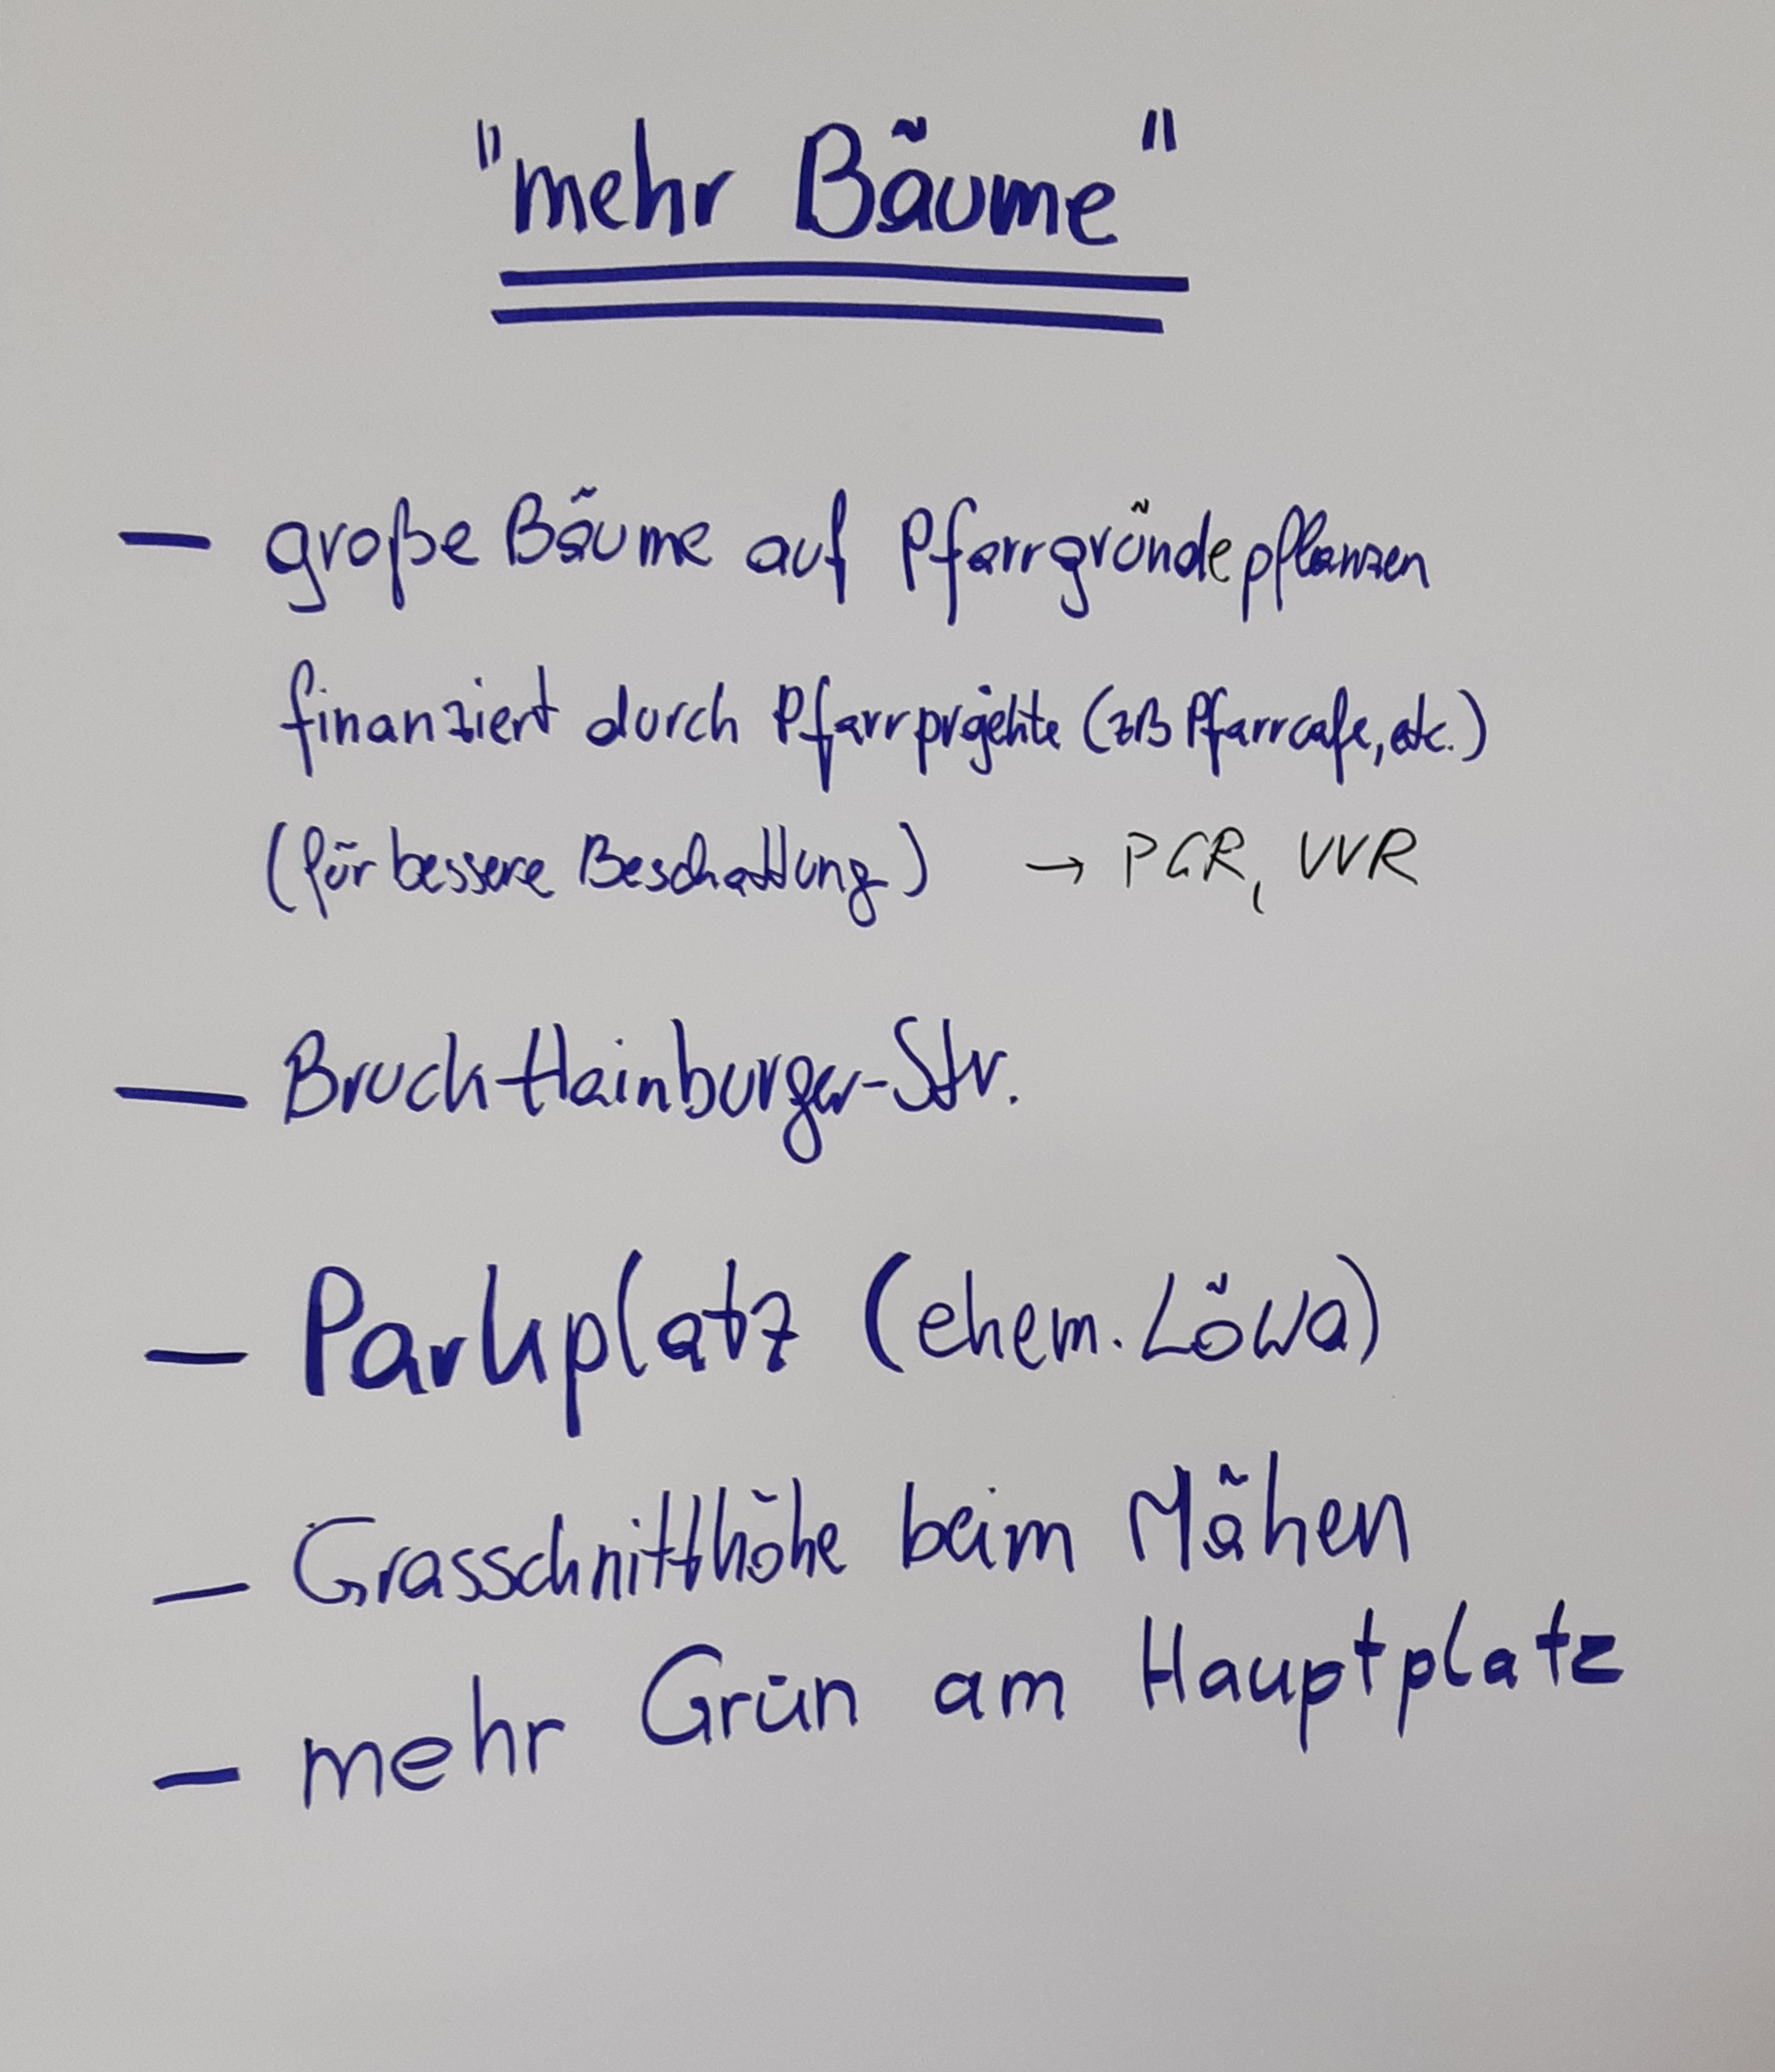 "mehr Bäume"
– große Bäume auf Pfarrgründe pflanzen
finanziert durch Pfarrprojekte (zB Pfarrcafe, etc.)
(für bessere Beschattung) → PGR, VVR
– Bruck-Hainburger-Str.
– Parkplatz (ehem. Löwa)
– Grasschnitthöhe beim Mähen
– mehr Grün am Hauptplatz